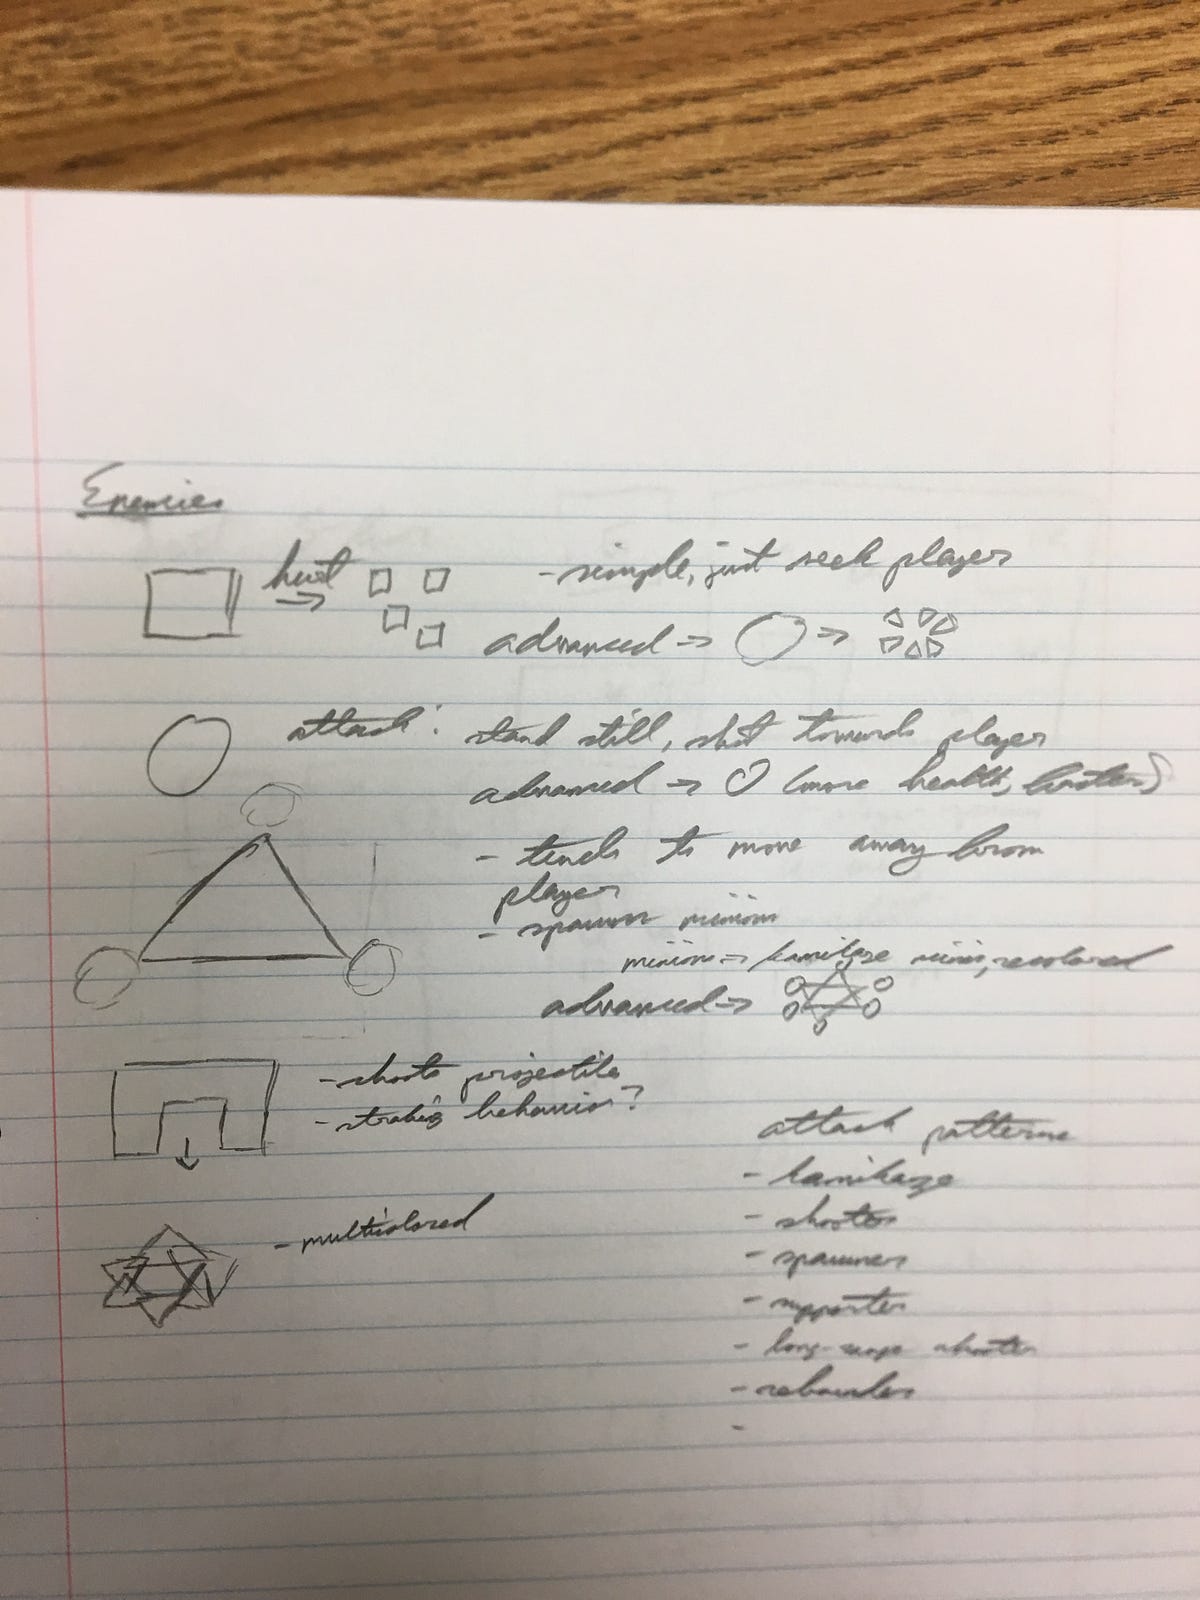 Enemies
hurt
- simple, just seek player
advanced →
→
attack: stand still, shot towards player
advanced → (more health, faster)
- tends to move away from
player
- spawns minions
minions → kamikaze minis, recolored
advanced →
- shoots projectile
- strafing behavior?
- multicolored
attack patterns
- kamikaze
- shooter
- spawners
- supporter
- long-range shooter
- rebounders
-